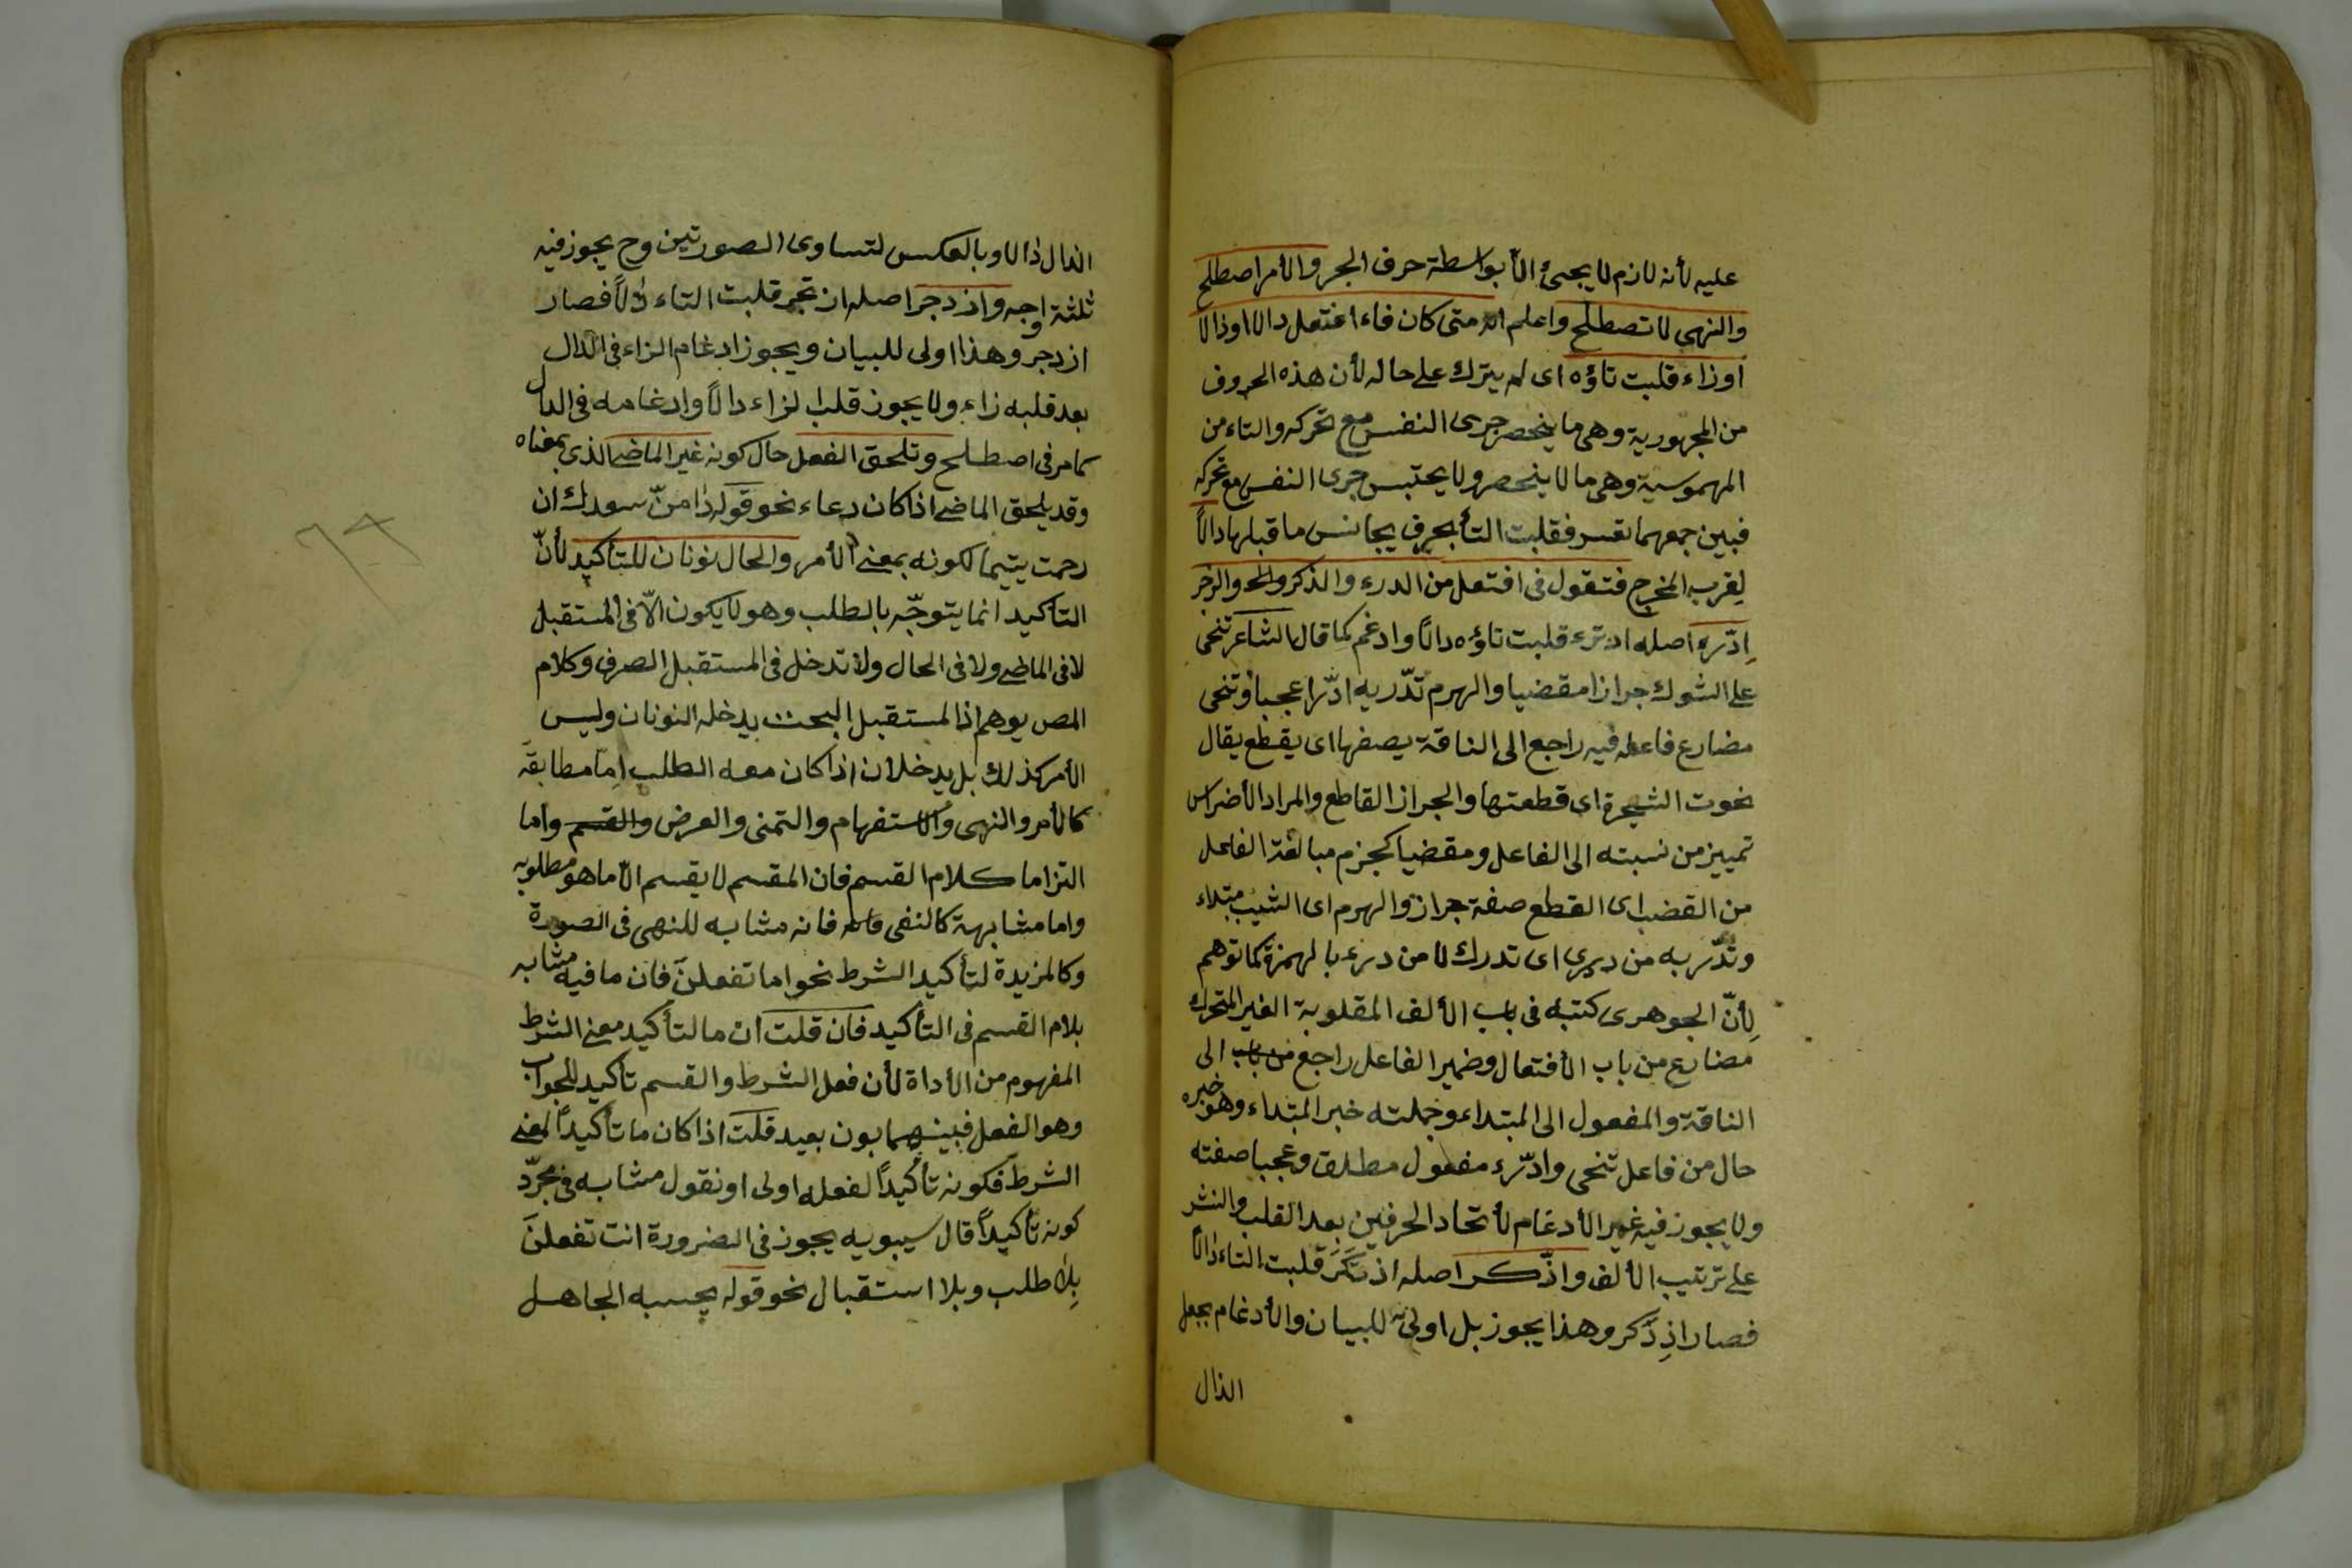 عليه لأنه لازم لا يجيئ الأ بواسطة حرف الجر والأمر اصطلح
والنهى لا تصطلح واعلم انه متى كان فاء افتعل دالا او ذالا
او زاء قلبت تاؤه اى لم يترك على حاله لأن هذه الحروف
من المجهورية وهى ما ينحصر جرى النفس مع تحركه والتاء من
المهموسية وهى ما لا ينحصر ولا يحتبس جرى النفس مع تحركه
فبين جمعهما تعسر فقلبت التأ بحرف يجانس ما قبلها دالاً
لِقرب المخرج فتقول فى افتعل من الدرء والذكر والزجر
اِدّره اصله ادترء قلبت تاؤه دالاً وادغم كما قال الشاعر تنحى
على الشوك جرازا مقضبا والهرم تدّريه ادّرا عجبا وتنحى
مضارع فاعله فيه راجع الى الناقة يصفها اى يقطع يقال
نحوت الشجرة اى قطعتها والجراز القاطع والمراد الأضراس
تمييز من نسبته الى الفاعل ومقضبا كمجزم مبالغة الفاعل
من القضب اى القطع صفة جراز والهرم اى الشيب مبتداء
وتدّريه من دري اى تدرك لا من درء بالهمزة كما توهم
لِأنّ الجوهرى كتبه فى باب الألف المقلوبة الغير المتحرك
مضارع من باب الأفتعال وضمير الفاعل راجع من باب الى
الناقة والمفعول الى المبتداء وجملته خبر المبتداء وهو خبره
حال من فاعل تنحى وادّرء مفعول مطلق وعجبا صفته
ولا يجوز فيه غير الأدغام لأتحاد الحرفين بعد القلب والنشر
على ترتيب الألف واذّكر اصله اذتَكَرَ قلبت التاء دالاً
فصار اذِدَكر وهذا يجوز بل اولى للبيان والأدغام بجعل
الذال
الدال ذالا وبالعكس لتساوى الصورتين وح يجوز فيه
ثلثة اوجه وازدجر اصله ازتجر قلبت التاء دالاً فصار
ازدجر وهذا اولى للبيان ويجوز ادغام الزاء فى الدال
بعد قلبه زاء ولا يجوز قلب الزاء دالاً وادغامه فى الدال
كما مر فى اصطلح وتلحق الفعل حال كونه غير الماضى الذى بمعناه
وقد يلحق الماضى اذا كان دعاء نحو قوله دامنّ سعدك ان
رحمت يتيما لكونه بمعنى الأمر والحال نونان للتأكيد لأنّ
التاكيد انما يتوجّه بالطلب وهو لا يكون الّا فى المستقبل
لا فى الماضى ولا فى الحال ولا تدخل فى المستقبل الصرف وكلام
المص يوهم اذ المستقبل البحت يدخله النونان وليس
الأمر كذلك بل يدخلان اذا كان معه الطلب اِمّا مطابقة
كالأمر والنهى والاستفهام والتمنى والعرض والقسم واما
التزاما كلام القسم فان المقسم لا يقسم الّا ما هو مطلوبه
واما مشابهة كالنفى فانه مشابه للنهى فى الصورة
وكالمزيدة لتأكيد الشرط نحو اما تفعلنّ فان ما فيه مشابه
بلام القسم فى التأكيد فان قلت ان ما لتأكيد معنى الشرط
المفهوم من الأداة لأن فعل الشرط والقسم تأكيد للجواب
وهو الفعل فبينهما بون بعيد قلت اذا كان ما تأكيداً لمعنى
الشرط فكونه تأكيداً لفعله اولى او نقول مشابه فى مجرّد
كونه تأكيداً قال سيبويه يجوز فى الضرورة انت تفعلنَ
بِلا طلب وبلا استقبال نحو قوله يحسبه الجاهل